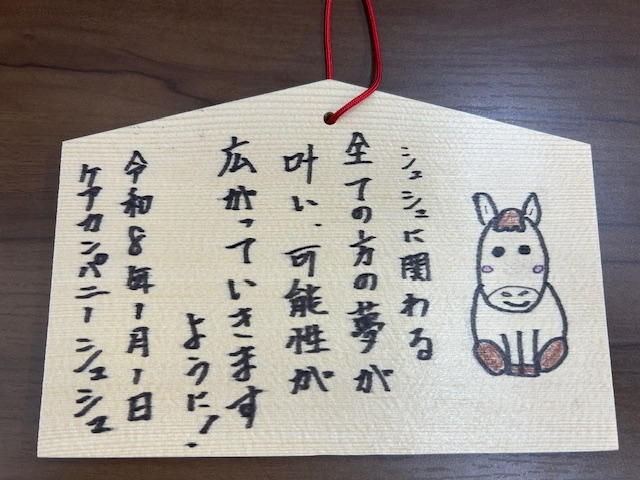 シュシュに関わる
全ての方の夢が
叶い、可能性が
広がっていきます
ように！
令和8年1月1日
ケアカンパニーシュシュ